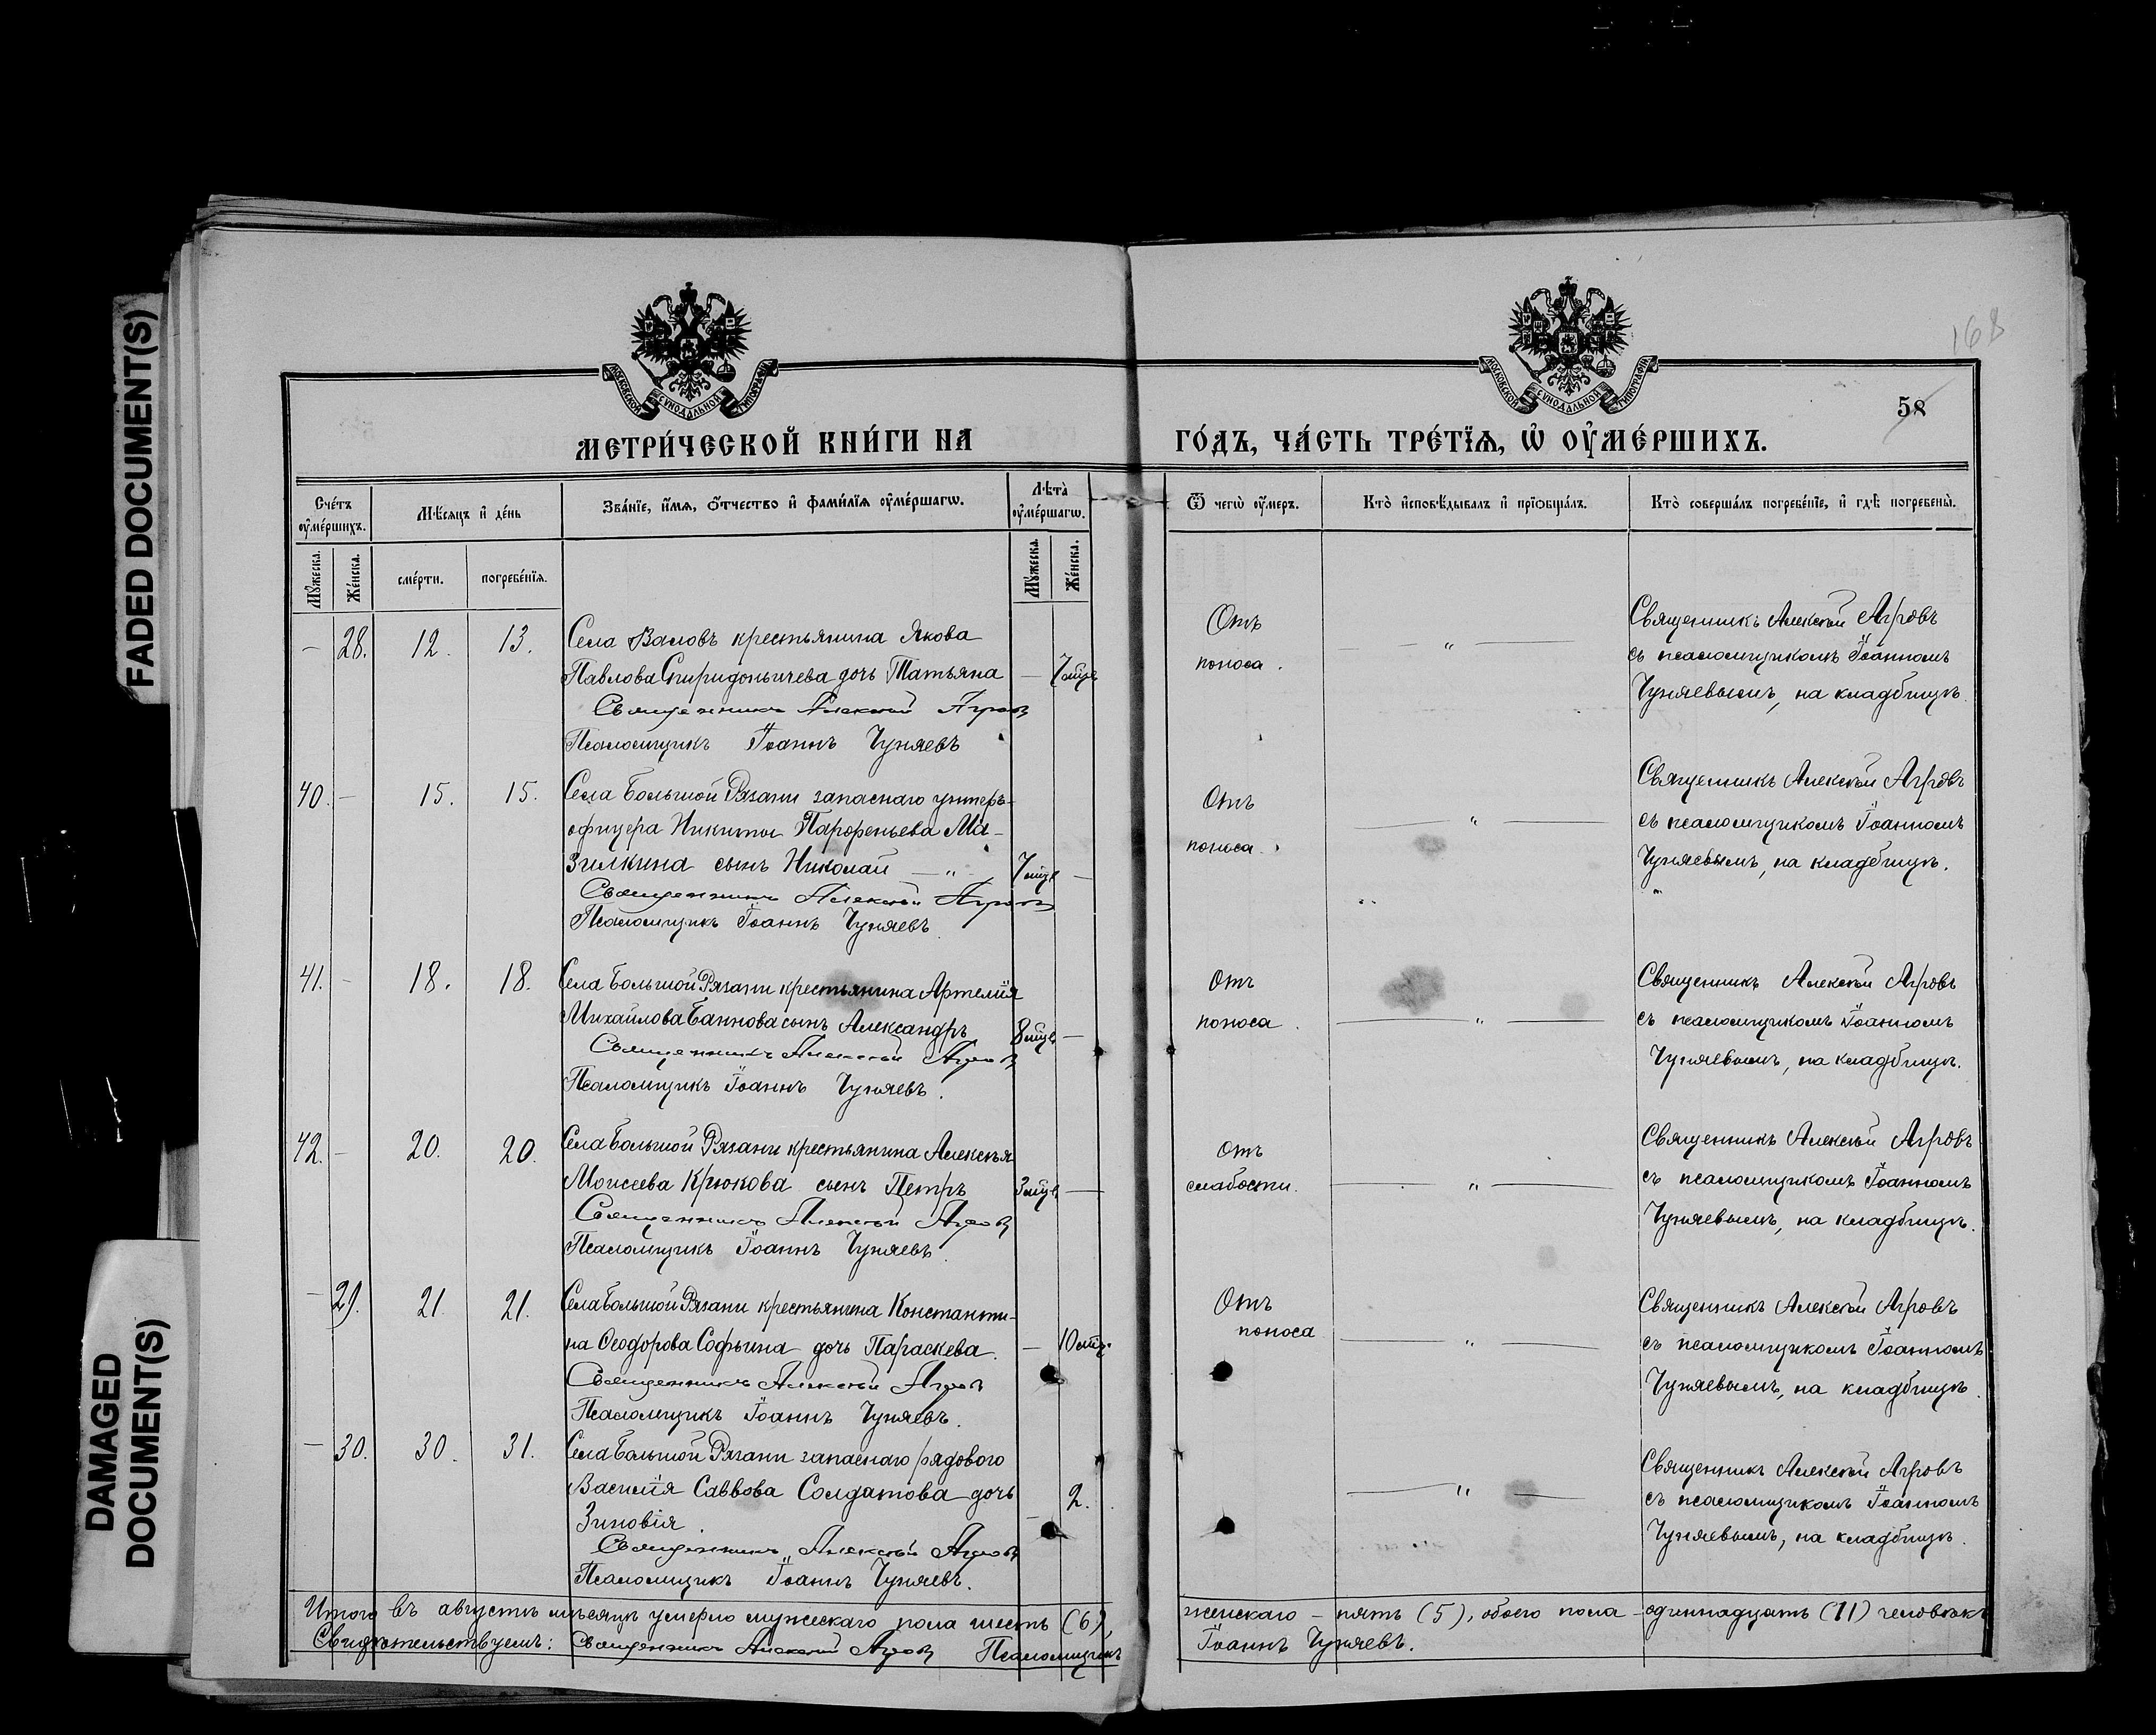 FADED DOCUMENT(S)
DAMAGED
DOCUMENT(S)
168
58
МОСКОВСКОЙ СѴНОДАЛЬНОЙ ТИПОГРАФІИ
МОСКОВСКОЙ СѴНОДАЛЬНОЙ ТИПОГРАФІИ
МЕТРИ́ЧЕСКОЙ КНИ́ГИ НА
ГО́ДЪ, ЧА́СТЬ ТРЕ́ТЇѦ, Ѡ҆ ОУ҆МЕ́РШИХЪ.
Сче́тъ
оу҆ме́ршихъ.
Мѣ́сяцъ и҆ де́нь
Зва́нїе, и҆́мѧ, о҆́тчество и҆ фами́лїѧ оу҆ме́ршагѡ.
Лѣта̀
оу҆ме́ршагѡ.
Ѿ чегѡ̀ оу҆́меръ.
Кто̀ и҆сповѣ́дывалъ и҆ прїѻбща́лъ.
Кто̀ соверша́лъ погребе́нїе, и҆ гдѣ̀ погребены̀.
Мꙋ́жеска.
Же́нска.
сме́рти.
погребе́нїѧ.
Мꙋ́жеска.
Же́нска.
— 28. 12. 13. Села Валовъ крестьянина Якова
Павлова Спиридоньичева дочь Татьяна — 7 мцв
Священникъ Алексѣй Агровъ
Псаломщикъ Іоаннъ Чуняевъ
Отъ
поноса.
— " —
Священникъ Алексѣй Агровъ
съ псаломщикомъ Іоанномъ
Чуняевымъ, на кладбищѣ.
40. — 15. 15. Села Большой Рязани запаснаго унтеръ-
офицера Никиты Парфеньева Ма-
зилкина сынъ Николай — " — 7 мцв —
Священникъ Алексѣй Агровъ
Псаломщикъ Іоаннъ Чуняевъ
Отъ
поноса.
— " —
Священникъ Алексѣй Агровъ
съ псаломщикомъ Іоанномъ
Чуняевымъ, на кладбищѣ.
41. — 18. 18. Села Большой Рязани крестьянина Артемія
Михайлова Баннова сынъ Александръ 8 мцв —
Священникъ Алексѣй Агровъ
Псаломщикъ Іоаннъ Чуняевъ.
Отъ
поноса.
— " —
Священникъ Алексѣй Агровъ
съ псаломщикомъ Іоанномъ
Чуняевымъ, на кладбищѣ.
42. — 20. 20. Села Большой Рязани крестьянина Алексѣя
Моисеева Крюкова сынъ Петръ 3 мцв —
Священникъ Алексѣй Агровъ
Псаломщикъ Іоаннъ Чуняевъ.
Отъ
слабости.
— " —
Священникъ Алексѣй Агровъ
съ псаломщикомъ Іоанномъ
Чуняевымъ, на кладбищѣ.
— 29. 21. 21. Села Большой Рязани крестьянина Константи-
на Ѳеодорова Софьина дочь Параскева. — 10 мцв.
Священникъ Алексѣй Агровъ
Псаломщикъ Іоаннъ Чуняевъ.
Отъ
поноса
— " —
Священникъ Алексѣй Агровъ
съ псаломщикомъ Іоанномъ
Чуняевымъ, на кладбищѣ.
— 30. 30. 31. Села Большой Рязани запаснаго рядового
Василія Саввова Солдатова дочь 2.
Зиновія. —
Священникъ Алексѣй Агровъ
Псаломщикъ Іоаннъ Чуняевъ.
— " —
Священникъ Алексѣй Агровъ
съ псаломщикомъ Іоанномъ
Чуняевымъ, на кладбищѣ.
Итого въ августѣ мѣсяцѣ умерло мужескаго пола шесть (6), женскаго — пять (5), обоего пола — одиннадцать (11) человѣкъ
Свидѣтельствуемъ: Священникъ Алексѣй Агровъ Псаломщикъ Іоаннъ Чуняевъ.